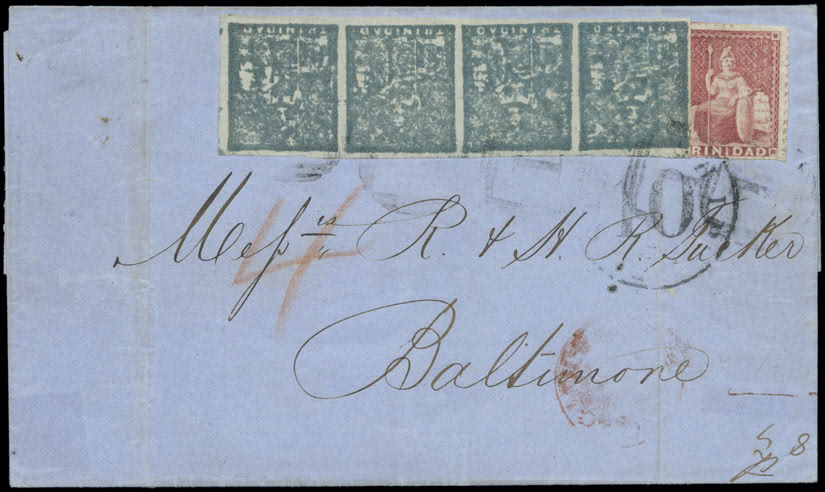 TRINIDAD TRINIDAD TRINIDAD TRINIDAD
TRINIDAD
10
4
Messrs R. & H. R. Tucker
Baltimore